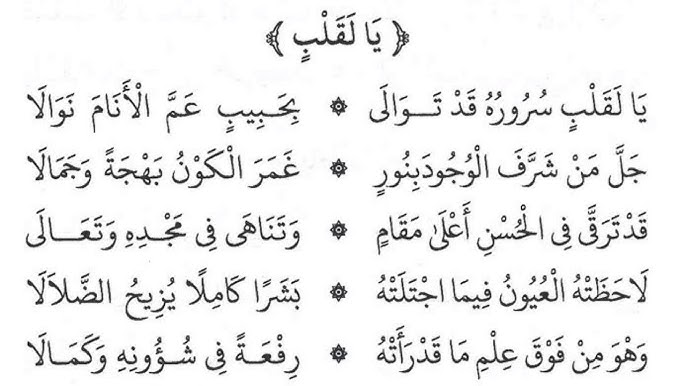 ﴿ يَا لَقَلْبٍ ﴾
يَا لَقَلْبٍ سُرُورُهُ قَدْ تَوَالَى ۞ بِحَبِيبٍ عَمَّ الْأَنَامَ نَوَالَا
جَلَّ مَنْ شَرَّفَ الْوُجُودَ بِنُورٍ ۞ غَمَرَ الْكَوْنُ بَهْجَةً وَجَمَالَا
قَدْ تَرَقَّى فِى الْحُسْنِ أَعْلَى مَقَامٍ ۞ وَتَنَاهَى فِى مَجْدِهِ وَتَعَالَى
لَاحَظَتْهُ الْعُيُونُ فِيمَا اجْتَلَتْهُ ۞ بَشَرًا كَامِلًا يُزِيحُ الضَّلاَلَا
وَهْوَ مِنْ فَوْقَ عِلْمِ مَا قَدْ رَأَتْهُ ۞ رِفْعَةً فِى شُؤُونِهِ وَكَمَالَا